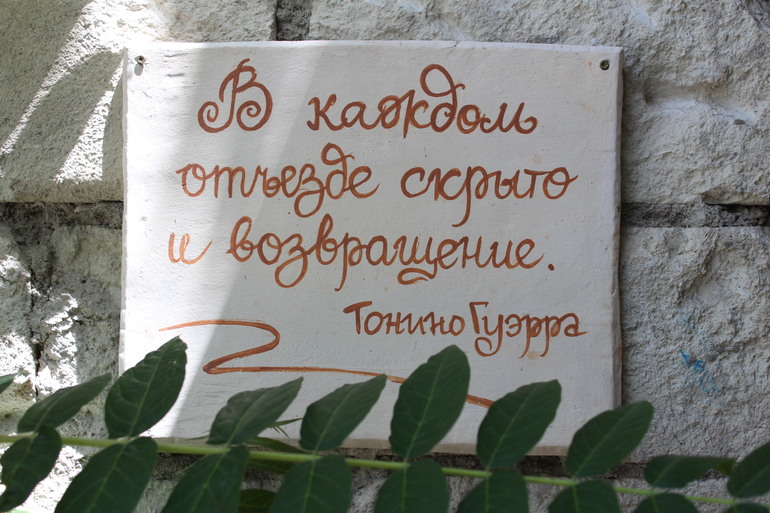 В каждом
отъезде скрыто
и возвращение.
Тонино Гуэрра